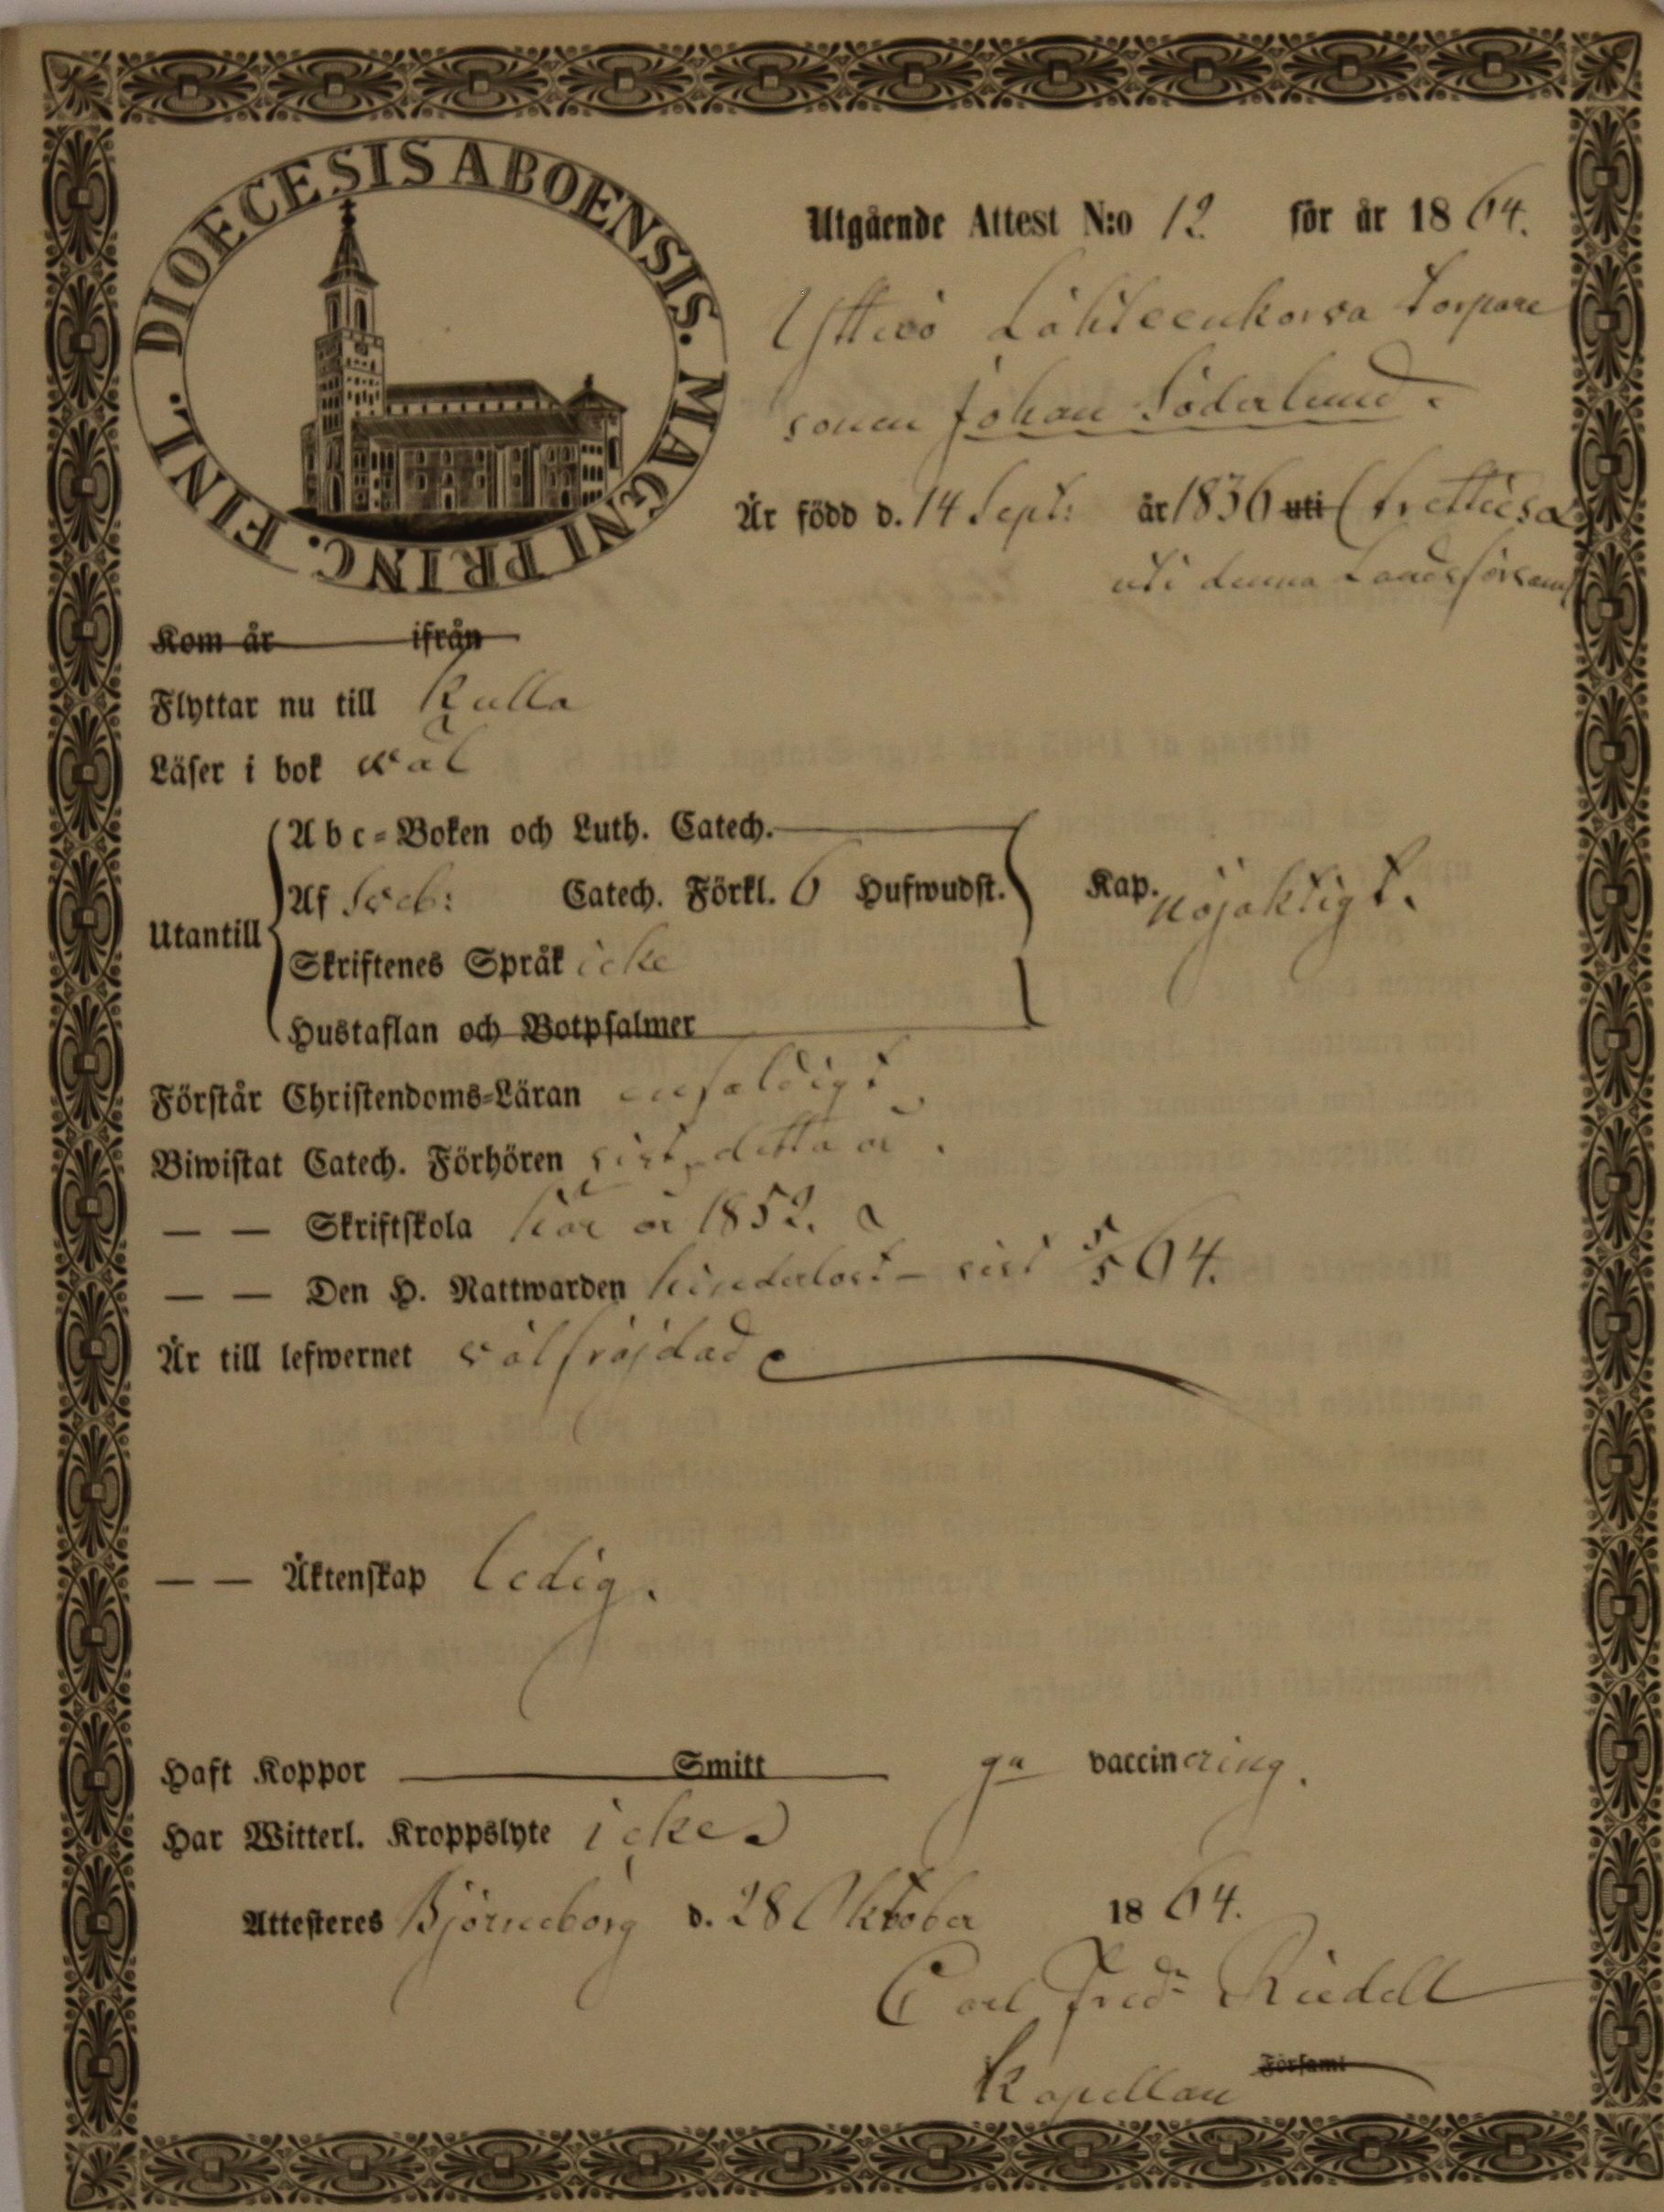 DIOECESIS ABOENSIS. MAGNI PRINC. FINL.
Utgående Attest N:o 12 för år 1864.
Yttiö Lähteenkorva Torpare
sonen Johan Söderlund.
Är född d. 14 Sept: år 1836 uti
uti denna Landsförsaml
Kom år ifrån
Flyttar nu till Kulla
Läser i bok väl
Utantill
Abc-Boken och Luth. Catech.
Af Sveb: Catech. Förkl. 6 Hufwudst. Kap. nöjaktigt.
Skriftenes Språk icke
Hustaflan och Botpsalmer
Förstår Christendoms-Läran enfaldigt
Biwistat Catech. Förhören sist detta år.
— — Skriftskola här år 1852.
— — Den H. Nattwarden hinderlöst – sist 5/5 64.
Är till lefwernet välfräjdad
— — Äktenskap ledig.
Haft Koppor Smitt ga vaccinering.
Har Witterl. Kroppslyte icke
Attesteres Björneborg d. 28 Oktober 1864.
Carl Fredr Riedell
Kapellan Församl